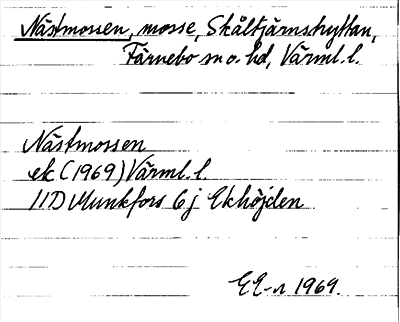 Nästmossen, mosse, Skåltjärnshyttan,
Färnebo sn o. hd, Värml. l.
Nästmossen
ek (1969) Värml. l
11D Munkfors 6 j Ekhöjden
EE-n 1969.